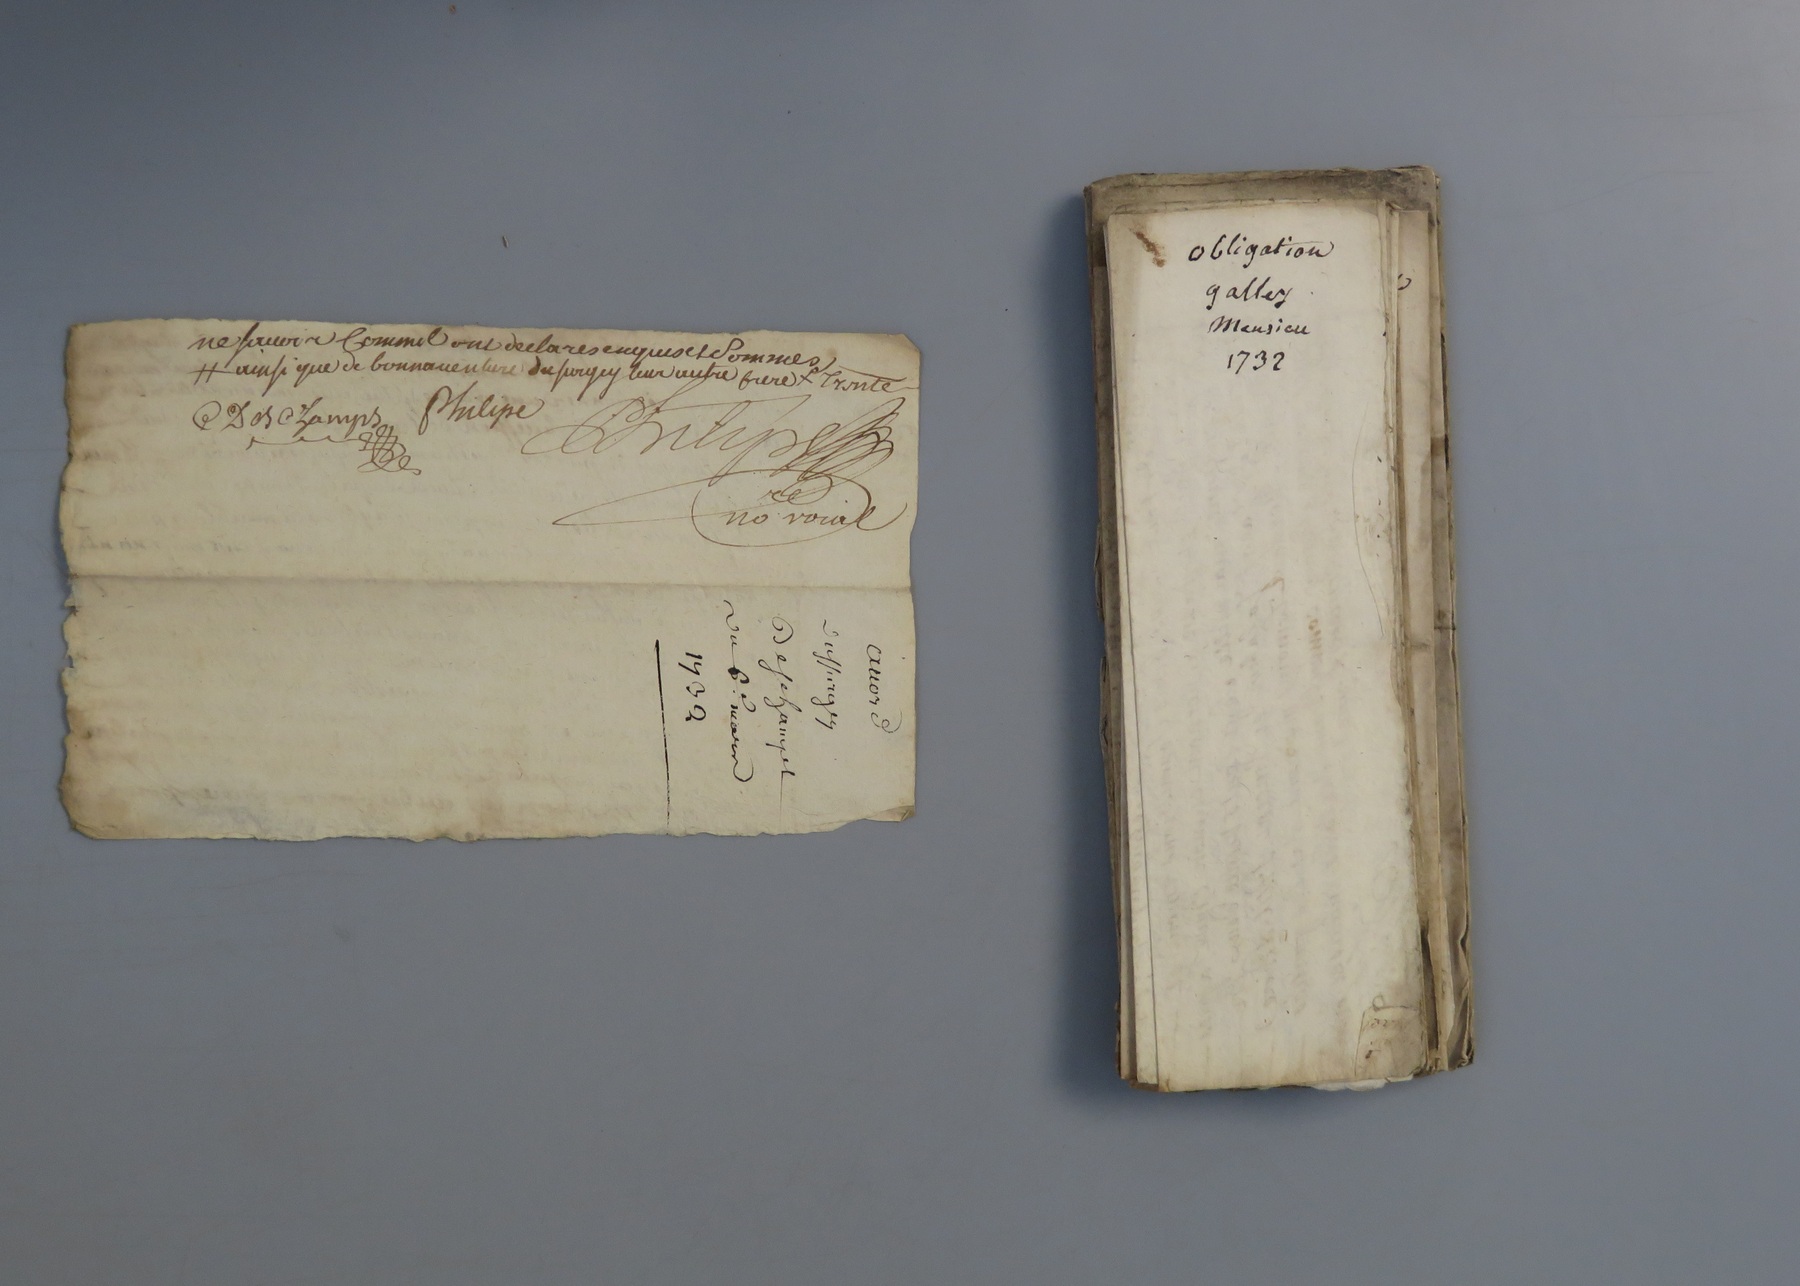 ne sauoir Comme ont declares enquis et Sommes
# ainsi que de bonnauenture dusurgey leur autre frere
C Deschamps Philipe
Philipe
re
no roial
acord
dussurgey
Deschamps
du 6e mars
1732
obligation
galley
Mensieu
1732